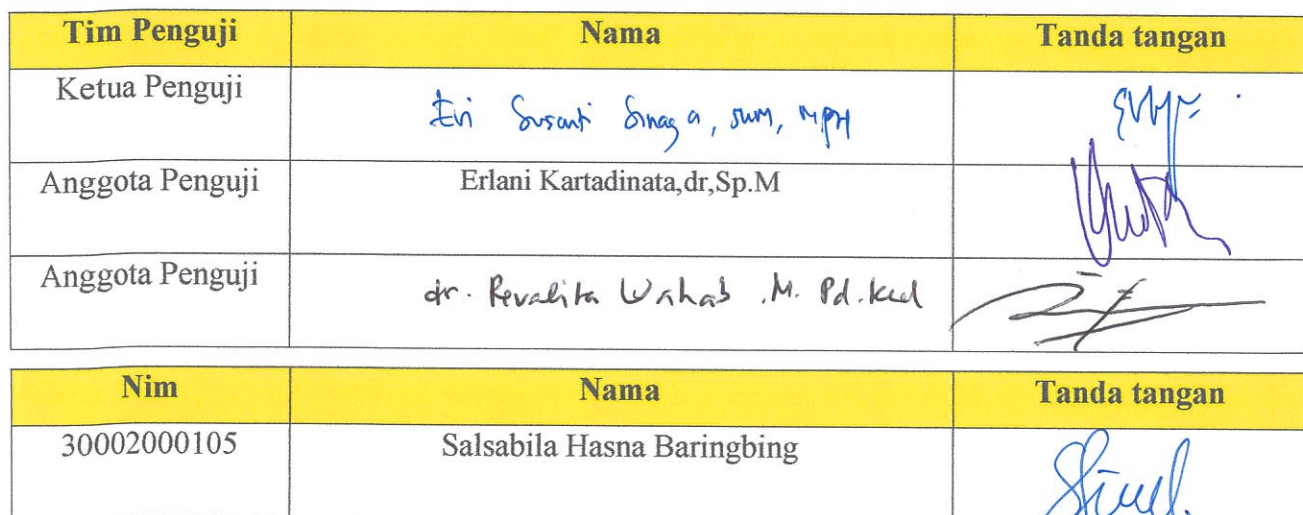 Tim Penguji Nama Tanda tangan
Ketua Penguji
Evi Susanti Sinaga, SKM, MPH
Anggota Penguji Erlani Kartadinata,dr,Sp.M
Anggota Penguji
dr. Revalita Wahab .M. Pd.Ked
Nim Nama Tanda tangan
30002000105 Salsabila Hasna Baringbing